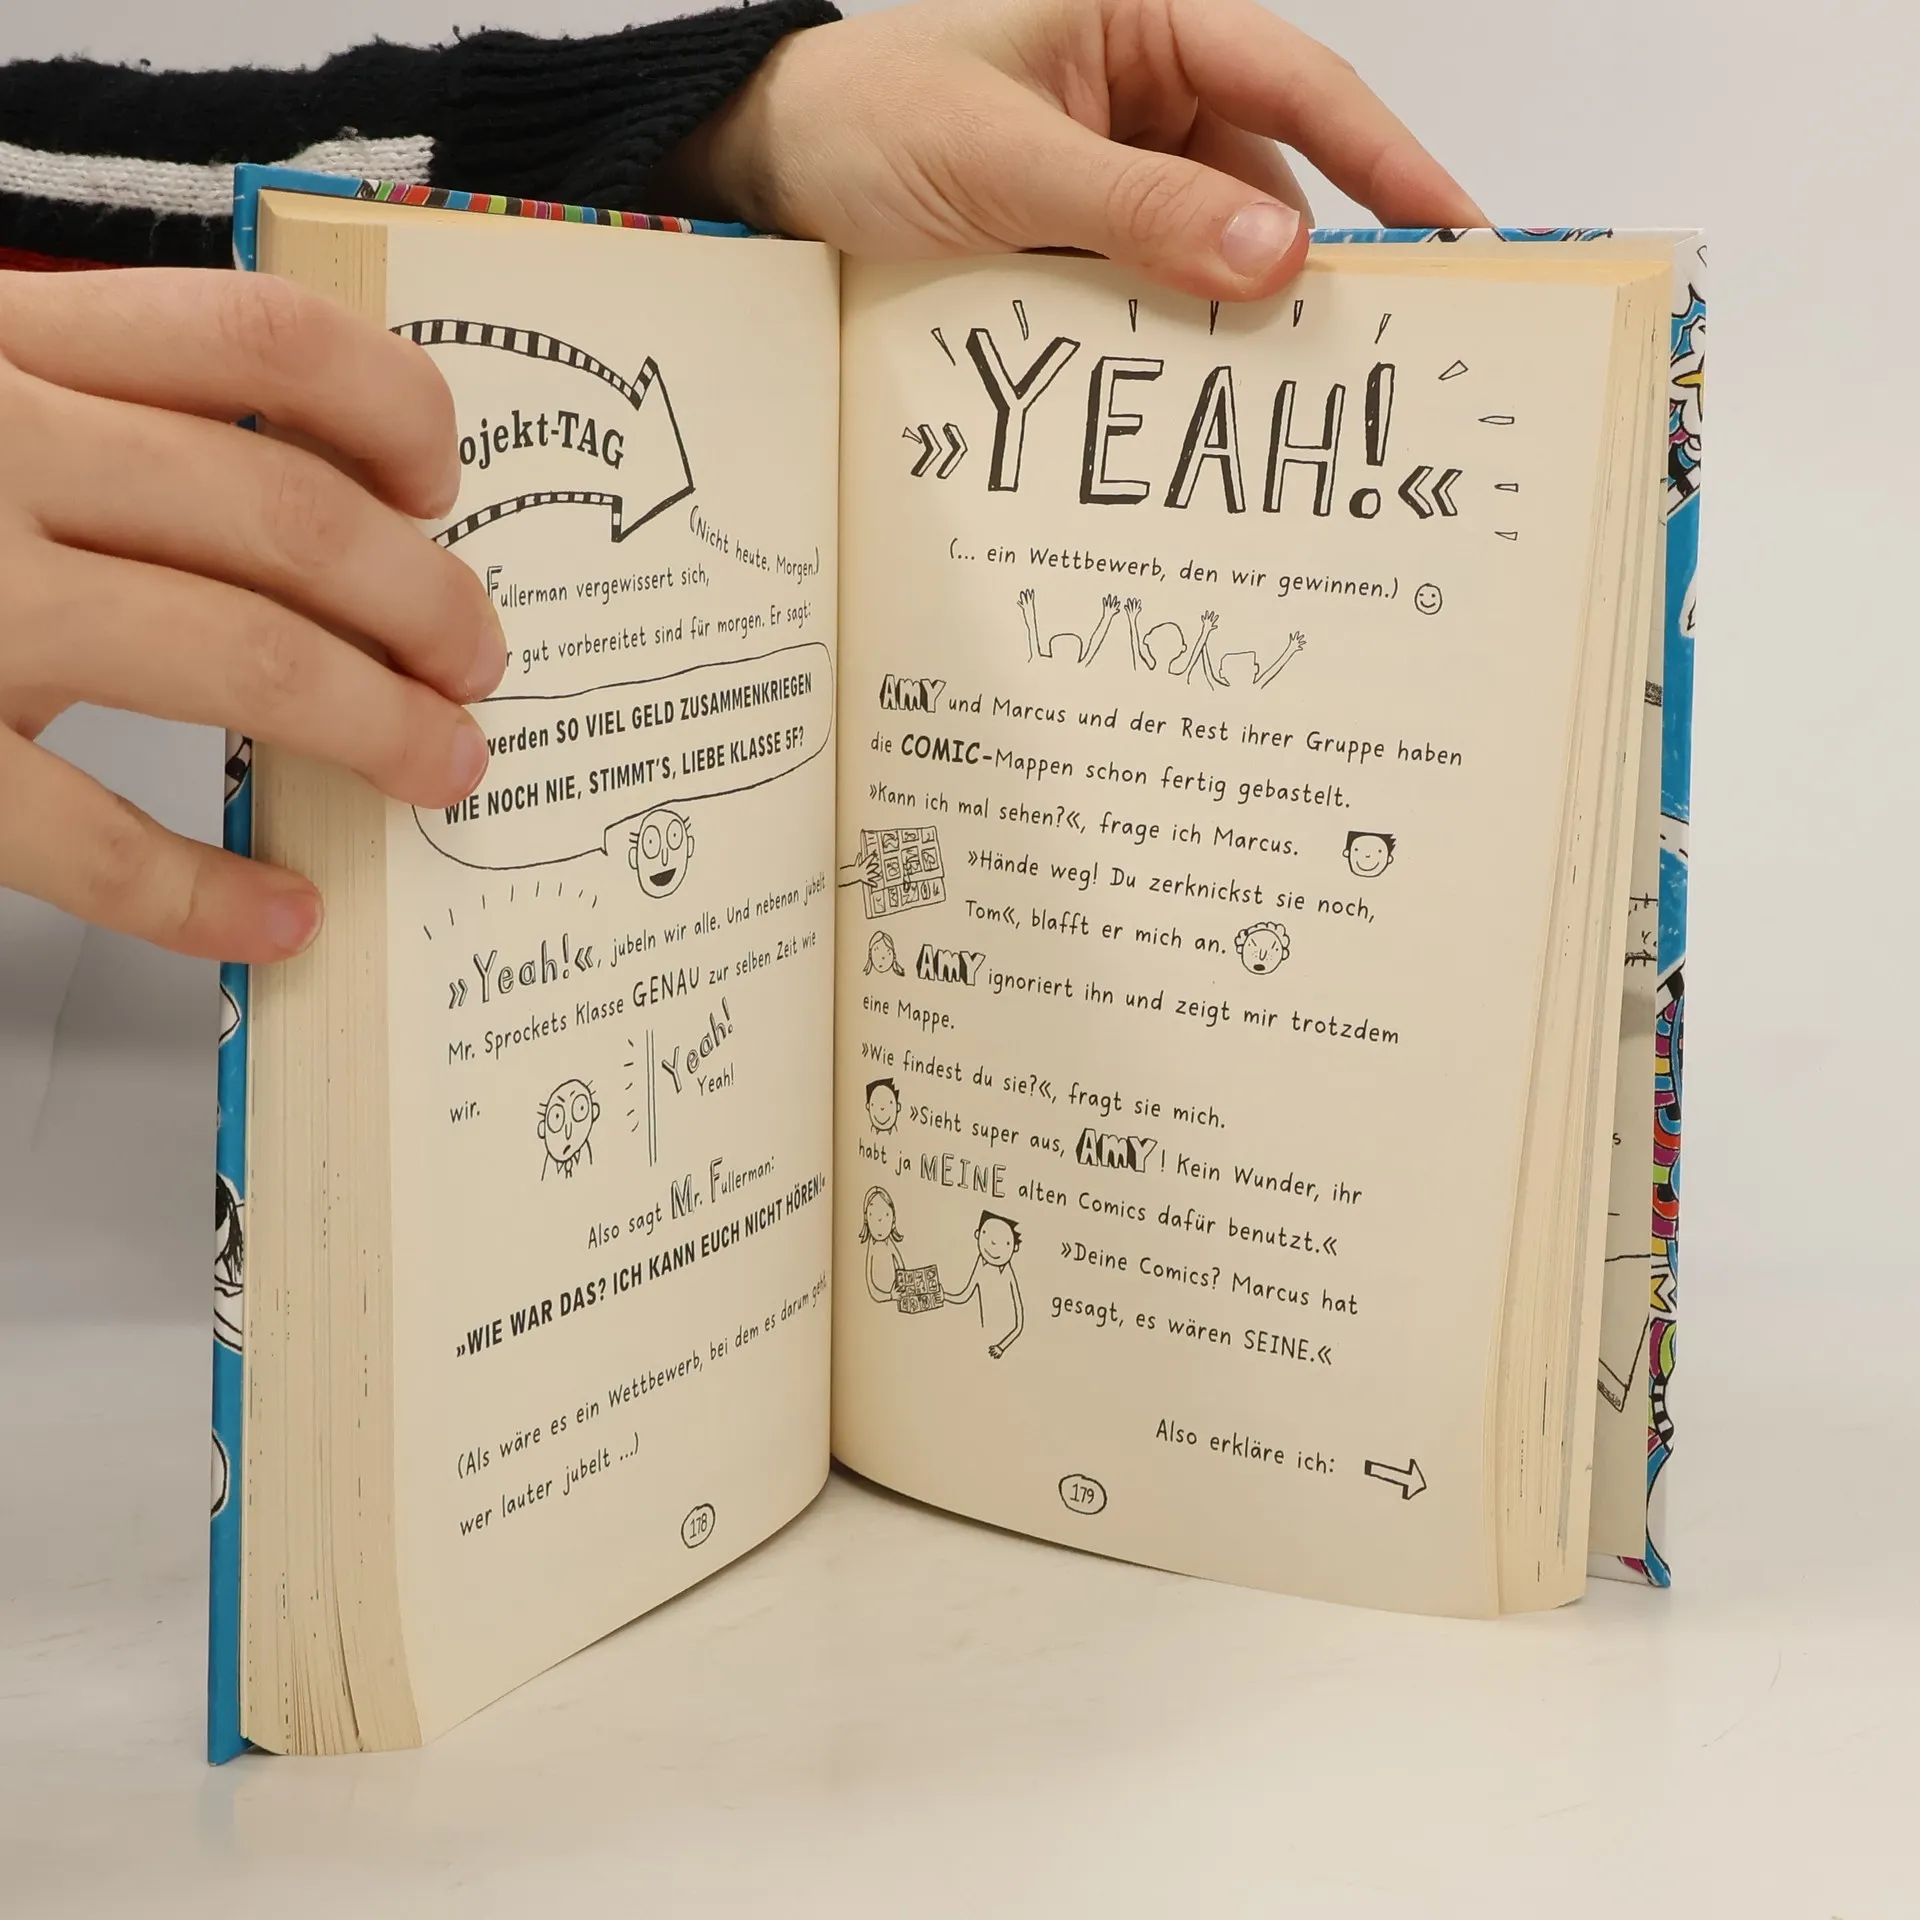 ojekt-TAG
(Nicht heute. Morgen.)
Fullerman vergewissert sich,
gut vorbereitet sind für morgen. Er sagt:
werden SO VIEL GELD ZUSAMMENKRIEGEN
WIE NOCH NIE, STIMMT'S, LIEBE KLASSE 5F?
»Yeah!«, jubeln wir alle. Und nebenan jubelt
Mr. Sprockets Klasse GENAU zur selben Zeit wie
wir.
Yeah!
Yeah!
Also sagt Mr. Fullerman:
»WIE WAR DAS? ICH KANN EUCH NICHT HÖREN!«
(Als wäre es ein Wettbewerb, bei dem es darum geht,
wer lauter jubelt ...)
178
»YEAH!«
(... ein Wettbewerb, den wir gewinnen.)
AMY und Marcus und der Rest ihrer Gruppe haben
die COMIC-Mappen schon fertig gebastelt.
»Kann ich mal sehen?«, frage ich Marcus.
»Hände weg! Du zerknickst sie noch,
Tom«, blafft er mich an.
AMY ignoriert ihn und zeigt mir trotzdem
eine Mappe.
»Wie findest du sie?«, fragt sie mich.
»Sieht super aus, AMY! Kein Wunder, ihr
habt ja MEINE alten Comics dafür benutzt.«
»Deine Comics? Marcus hat
gesagt, es wären SEINE.«
Also erkläre ich:
179